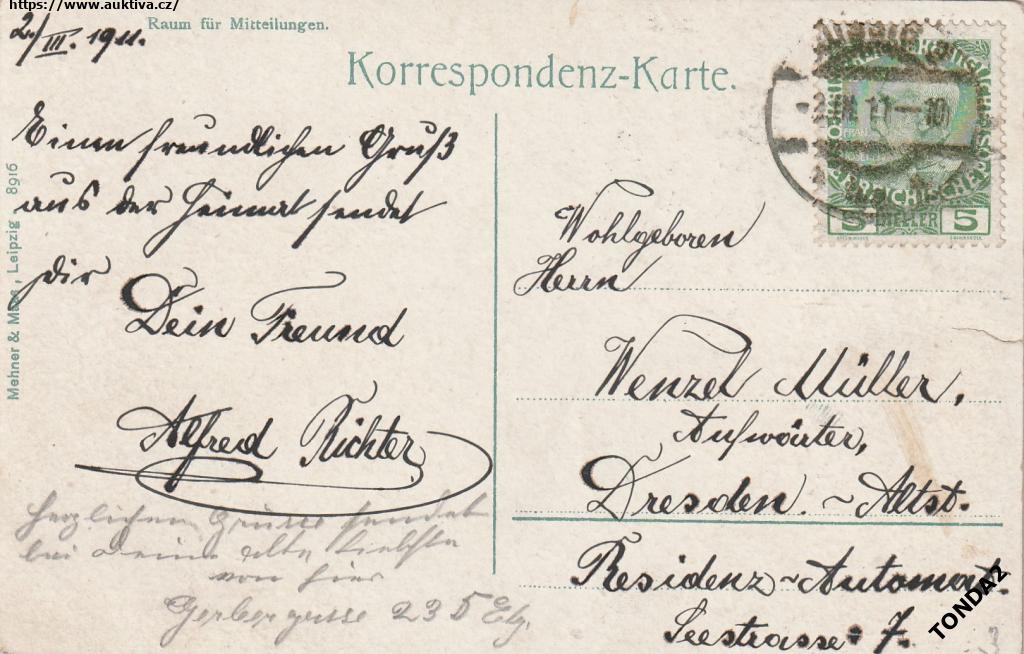 https://www.auktiva.cz/
Raum für Mitteilungen.
2./III. 1911.
Korrespondenz-Karte.
Einen freundlichen Gruß
aus der Heimat sendet
Dir
Dein Freund
Alfred Richter
Herzlichen Grüsse sendet
deine alte Liebste
von hier
Gerbergasse 23 5 Etg.
Mehner & Maas, Leipzig 8916
AUSSIG 2
-2 III 11 -10
5 HELLER 5
Wohlgeboren
Herrn
Wenzel Müller,
Aufwärter,
Dresden. ~ Altst.
Residenz~Automat.
Seestrasse 7.
TONDA2
3